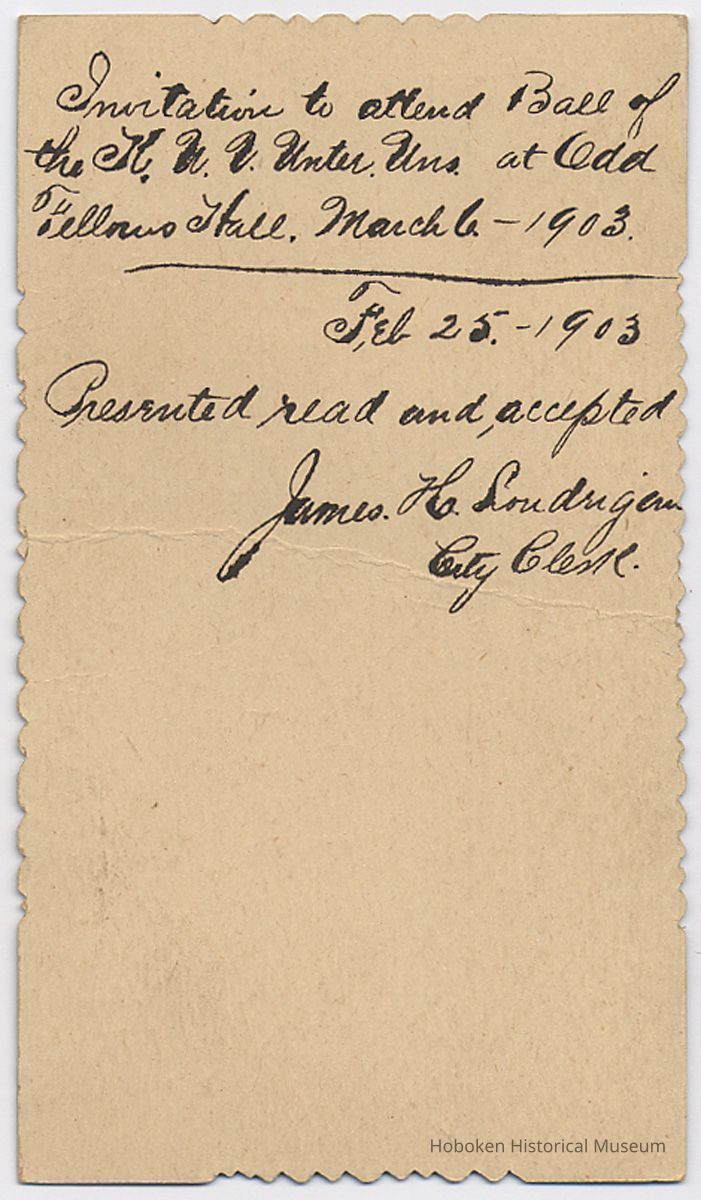 Invitation to attend Ball of
the K. U. V. Unter. Uns. at Odd
Fellows Hall. March 6. - 1903.
Feb 25. - 1903
Presented read and, accepted
James. H. Londrigan
City Clerk.
Hoboken Historical Museum